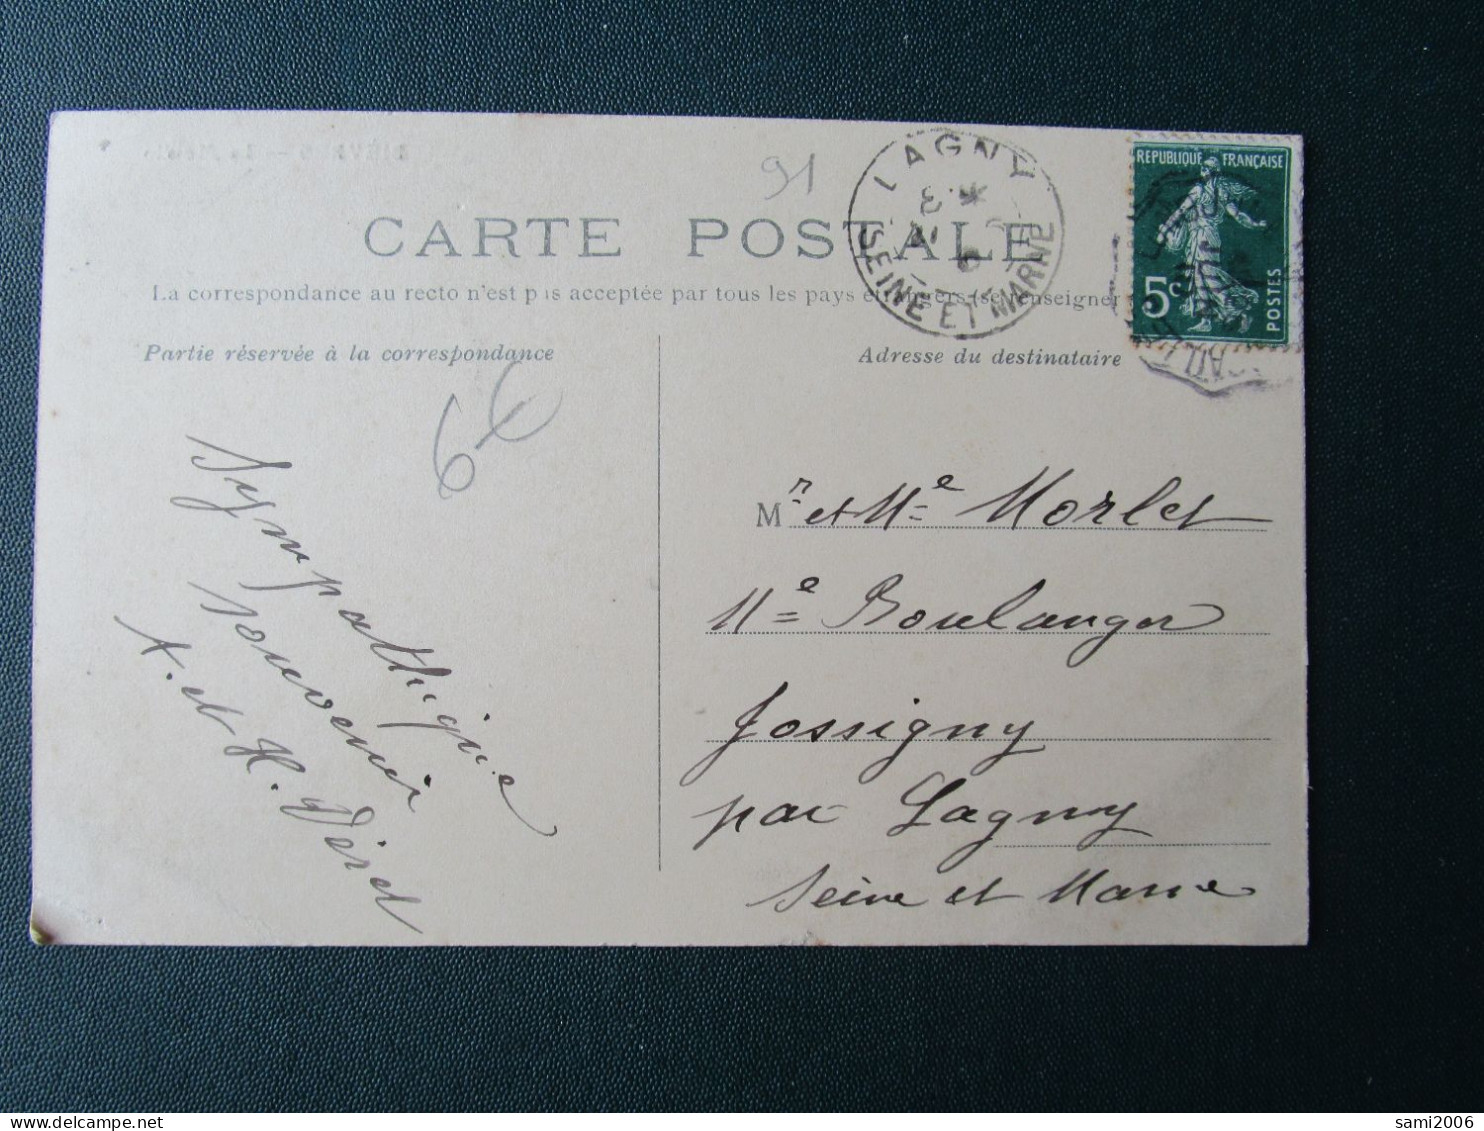 91
LAGNY
SEINE ET MARNE
REPUBLIQUE FRANÇAISE
5c
POSTES
CARTE POSTALE
La correspondance au recto n'est pas acceptée par tous les pays étrangers (se renseigner
Partie réservée à la correspondance
Adresse du destinataire
6€
Sympathique
souvenir
et H. Déret
Mr et Me Morlet
Me Boulanger
Jossigny
par Lagny
Seine et Marne
sami2006